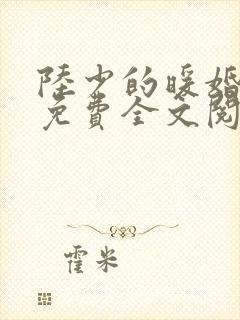 陸少的暖婚
免費全文閱
霍米